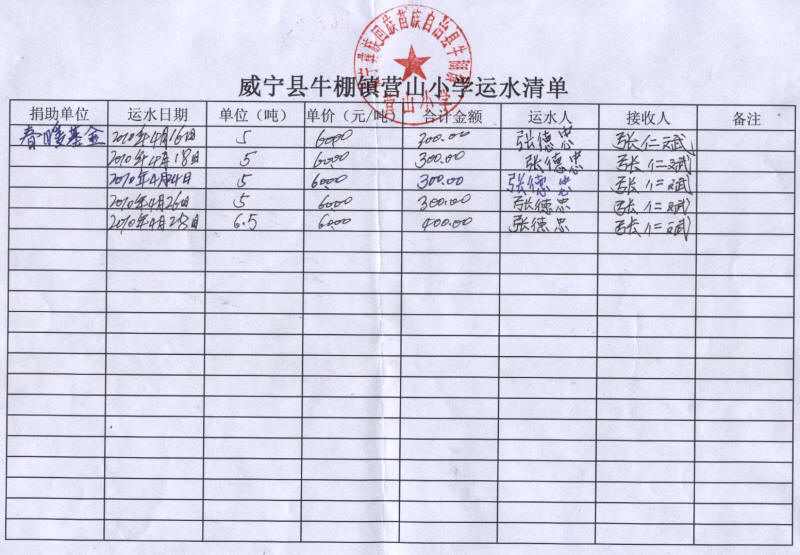 威宁彝族回族苗族自治县牛棚镇
营山小学
威宁县牛棚镇营山小学运水清单
捐助单位 运水日期 单位（吨） 单价（元/吨 合计金额 运水人 接收人 备注
春暖基金 2010年4月16日 5 60.00 300.00 张德忠 张仁斌
2010年4月18日 5 60.00 300.00 张德忠 张仁斌
2010年4月24日 5 60.00 300.00 张德忠 张仁斌
2010年4月26日 5 60.00 300.00 张德忠 张仁斌
2010年4月28日 6.5 60.00 400.00 张德忠 张仁斌